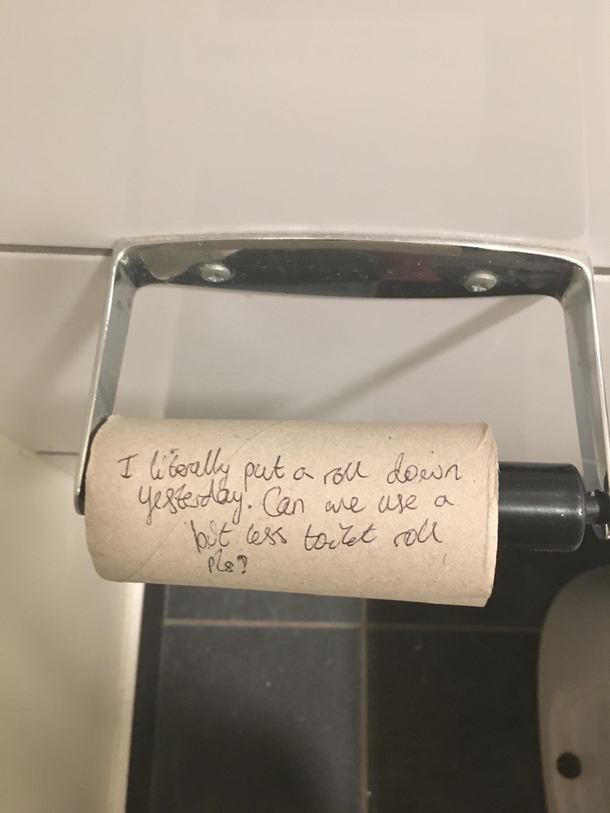 I literally put a roll down
yesterday. Can we use a
bit less toilet roll
pls?